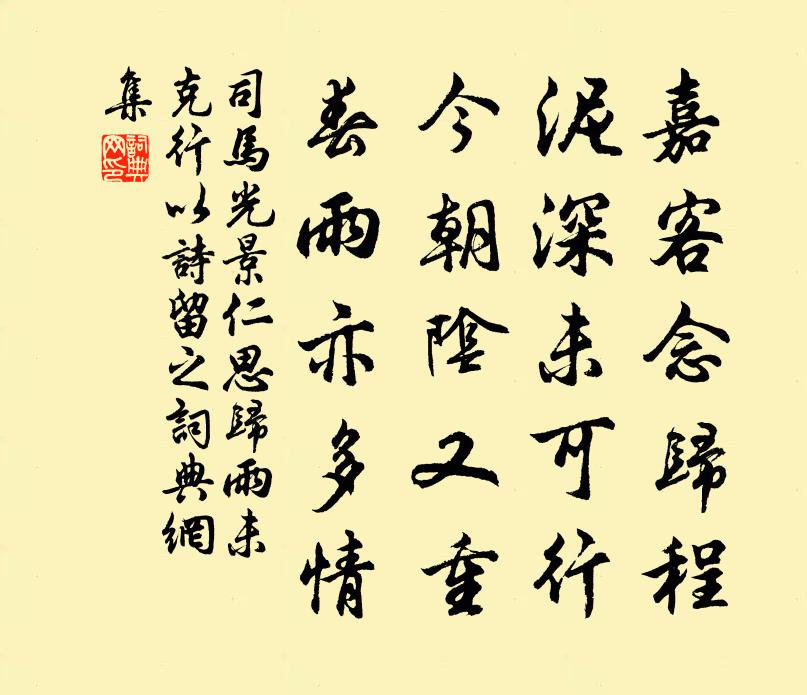 嘉客念歸程
泥深未可行
今朝陰又重
春雨亦多情
司馬光景仁思歸雨未
克行以詩留之詞典網
集
詞典
网印